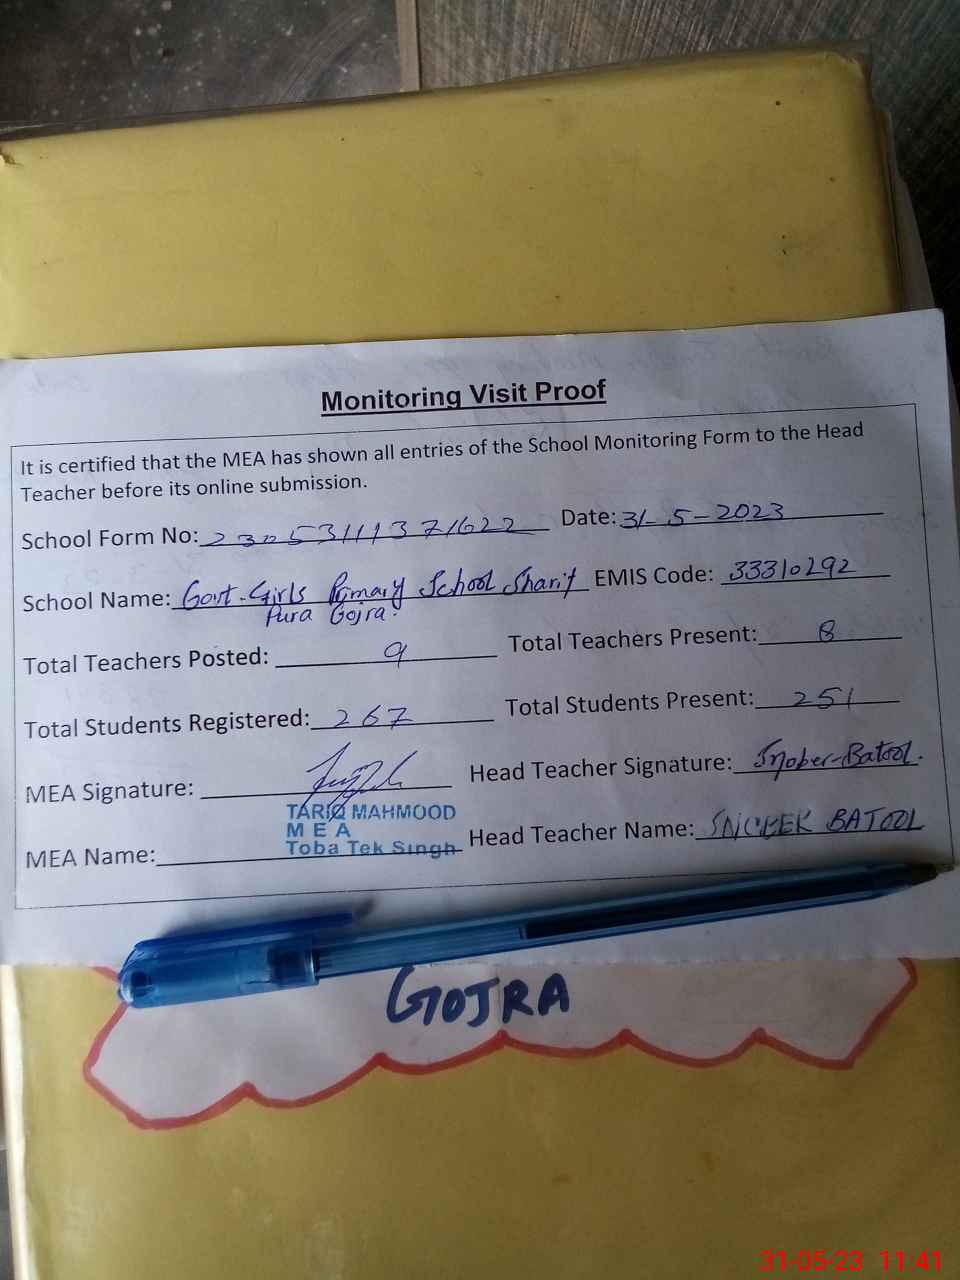 Monitoring Visit Proof
It is certified that the MEA has shown all entries of the School Monitoring Form to the Head
Teacher before its online submission.
School Form No: 23053111371622 Date: 31-5-2023
School Name: Govt. Girls Primary School Sharif EMIS Code: 33310292
Pura Gojra.
Total Teachers Posted: 9 Total Teachers Present: 8
Total Students Registered: 267 Total Students Present: 251
MEA Signature: Head Teacher Signature: Snober-Batool.
TARIQ MAHMOOD
M E A
Toba Tek Singh
MEA Name: Head Teacher Name: SNOBER BATOOL
GOJRA
31-05-23 11:41